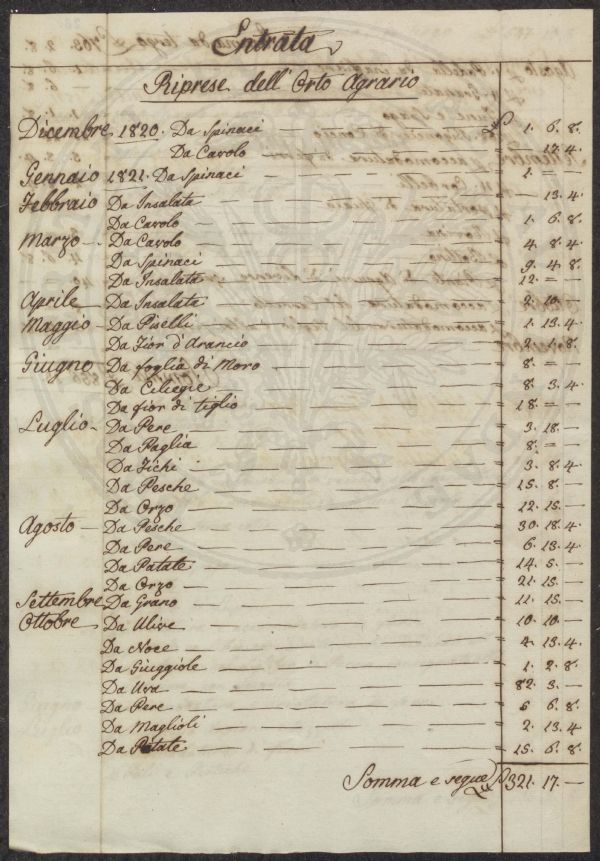 Entrata
Riprese dell' Orto Agrario
Dicembre 1820. Da Spinaci £ 1. 6. 8.
Da Cavolo — 13. 4.
Gennaio 1821. Da Spinaci 1. — —
Febbraio Da Insalata — 13. 4.
Da Cavolo 1. 6. 8.
Marzo Da Cavolo 4. 8. 4.
Da Spinaci 9. 4. 8.
Da Insalata 12. = —
Aprile Da Insalata 2. 10. —
Maggio Da Piselli 1. 13. 4.
Da Fior d'Arancio 2. 1. 8.
Giugno Da foglia di Moro 8. = —
Da Ciliegie 8. 3. 4.
Da fior di tiglio 18. = —
Luglio Da Pere 3. 18. —
Da Paglia 8. = —
Da Fichi 3. 8. 4.
Da Pesche 15. 8. —
Da Orzo 12. 15. —
Agosto Da Pesche 30. 18. 4.
Da Pere 6. 13. 4.
Da Patate 14. 5. —
Da Orzo 21. 15. —
Settembre Da Grano 11. 15. —
Ottobre Da Ulive 10. 10. —
Da Noce 4. 13. 4.
Da Giuggiole 1. 2. 8.
Da Uva 82. 3. —
Da Pere 6. 8.
Da Maglioli 2. 13. 4.
Da Patate 15. 6. 8.
Somma e segue £ 321. 17. —